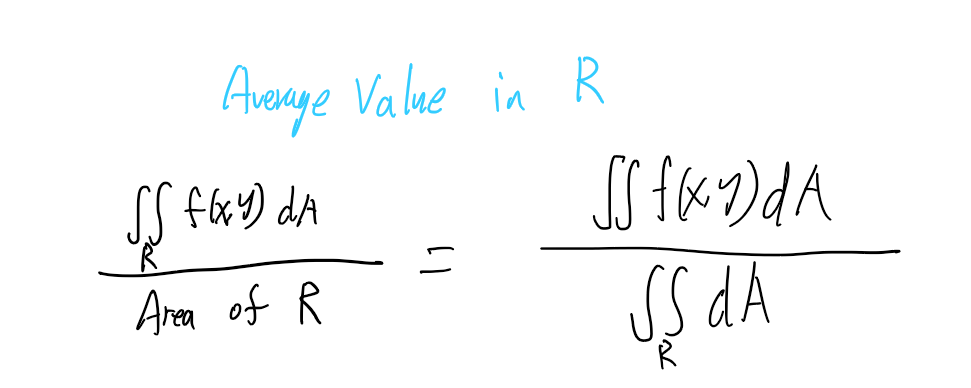 Average Value in R
∬_R f(x,y) dA / Area of R = ∬ f(x,y) dA / ∬_R dA